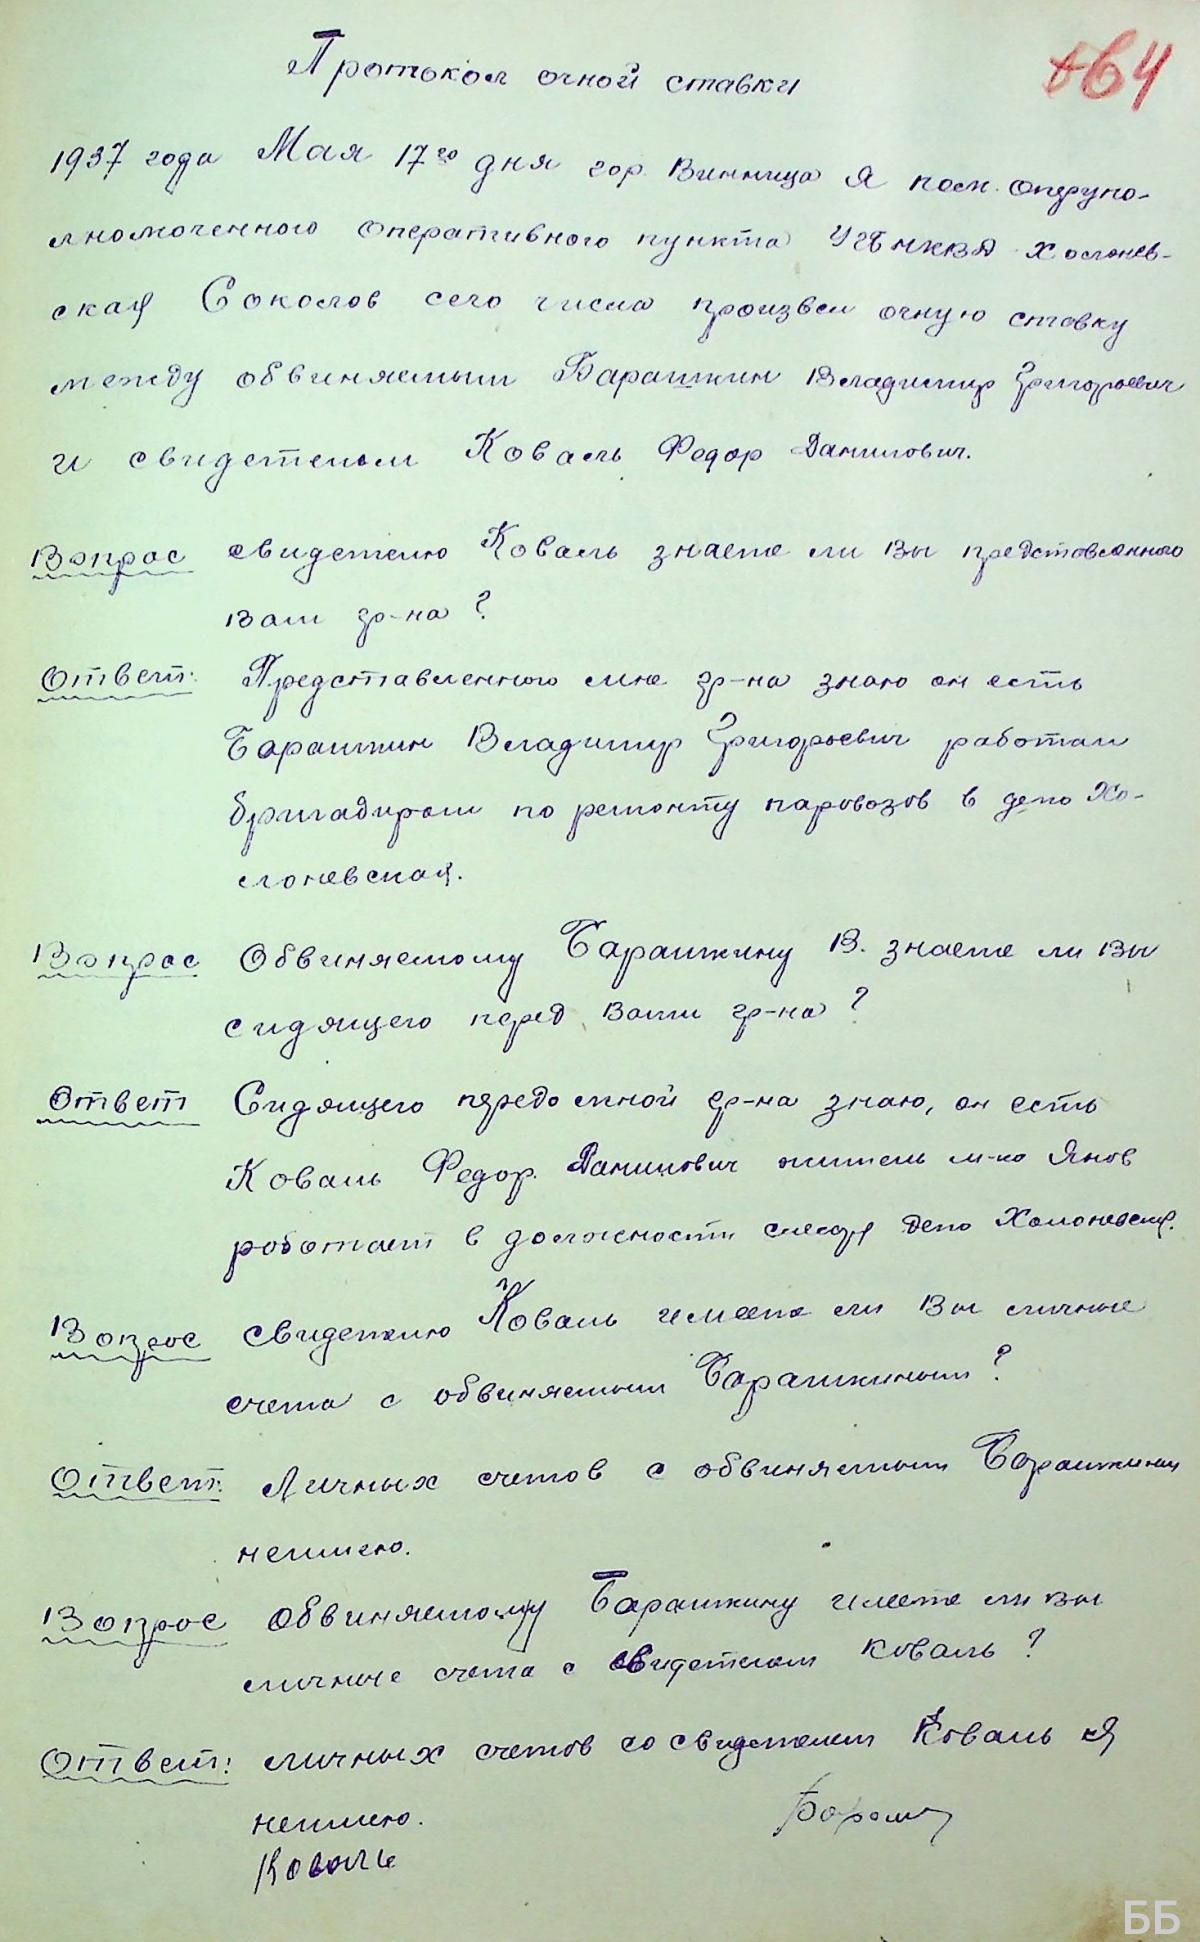 Протокол очной ставки
64
1937 года Мая 17го дня гор. Винница я пом. оперупо-
лномоченного оперативного пункта УГБ НКВД Холонев-
ская Соколов сего числа произвел очную ставку
между обвиняемым Барашкин Владимир Григорьевич
и свидетелем Коваль Федор Данилович.
Вопрос свидетелю Коваль знаете ли Вы представленного
Вам гр-на?
Ответ: Представленного мне гр-на знаю он есть
Барашкин Владимир Григорьевич работал
бригадиром по ремонту паровозов в депо Хо-
лоневская.
Вопрос Обвиняемому Барашкину В. знаете ли Вы
сидящего перед Вами гр-на?
Ответ Сидящего передомной гр-на знаю, он есть
Коваль Федор Данилович житель м-ко Янов
работает в должности слесаря депо Холоневская.
Вопрос свидетелю Коваль имеете ли Вы личные
счета с обвиняемым Барашкиным?
Ответ: Личных счетов с обвиняемым Барашкиным
неимею.
Вопрос обвиняемому Барашкину имеете ли вы
личные счета с свидетелем Коваль?
Ответ: личных счетов со свидетелем Коваль я
неимею.
Коваль
ББ